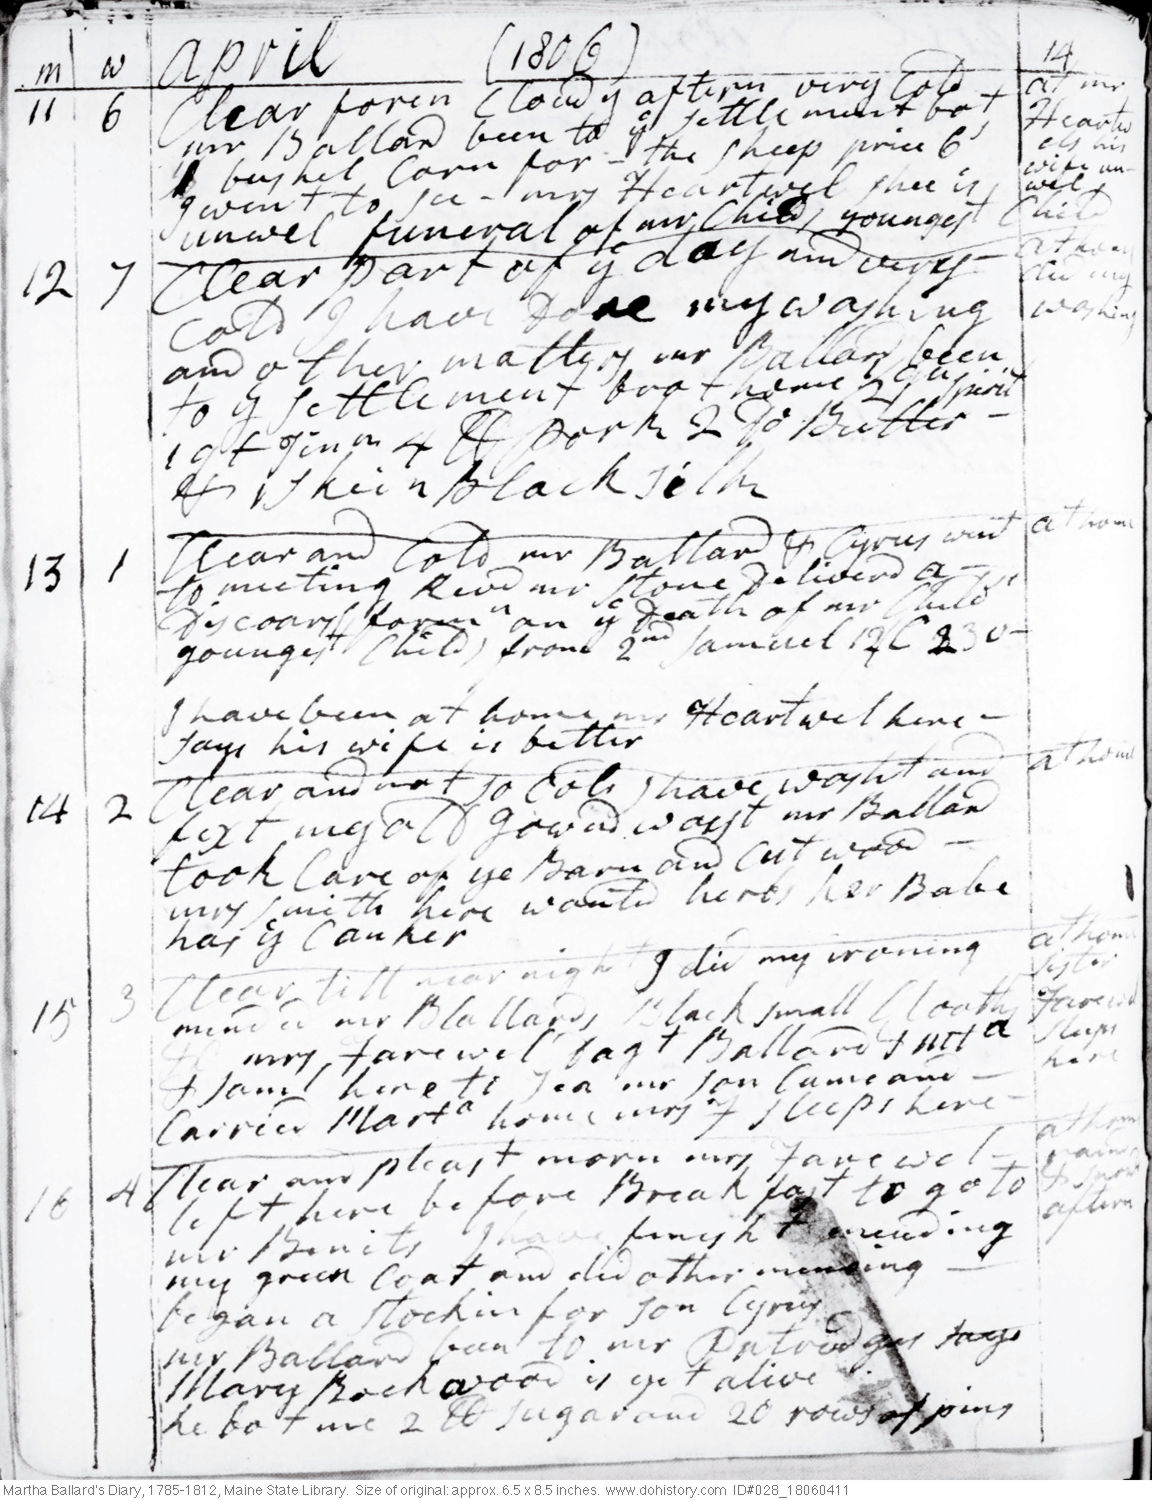 m w april (1806) 14
11 6 Clear foren Cloudy aftern very Cold at mr
mr Ballard been to ye settlement bot Heartw
1 bushel Corn for - the sheep price 6s els his
I went to see - mrs Heartwel shee is wife un-
unwel funeral of mr Childs youngest Child wel
12 7 Clear part of ye day and very at home
Cold I have Done my washing did my
and other matters mr Ballard been washing
to ye settlement brot home 2 qu spirit
1 qt Ginn 4 lb pork 2 Do Butter -
& 1 skein Black silk
13 1 Clear and Cold mr Ballard & Cyrus went at home
to meeting Revd mr Stone Deliverd a -
Discoars foren n on ye Death of mr Childs
youngest Child from 2nd Samuel 12 C 23 v -
I have been at home mr Heartwel here -
says his wife is better
14 2 Clear and not so Cold I have washt and at home
fixt my old gownd waist mr Ballard
took Care of ye Barn and Cut wood -
mrs smith here wanted herbs her Babe
has ye Canker
15 3 Clear till near night I did my ironing at home
mended mr Ballards Black small Cloaths sister
& mrs Farewel Dagt Ballard & Marta Farewel
& Saml here to Tea mr son Came and - sleeps
Carried Marta home mrs F sleeps here - here
16 4 Clear and pleast morn mrs Farewel - at home
left here before Break fast to go to rain
mr Benits I have finisht mending & snow
my green Coat and did other mending - aftern
began a stockin for son Cyrus
mr Ballard been to mr Patridges says
Mary Rockwood is yet alive
he bot me 2 lb sugar and 20 rows of pins
Martha Ballard's Diary, 1785-1812, Maine State Library. Size of original: approx. 6.5 x 8.5 inches. www.dohistory.com ID#028_18060411